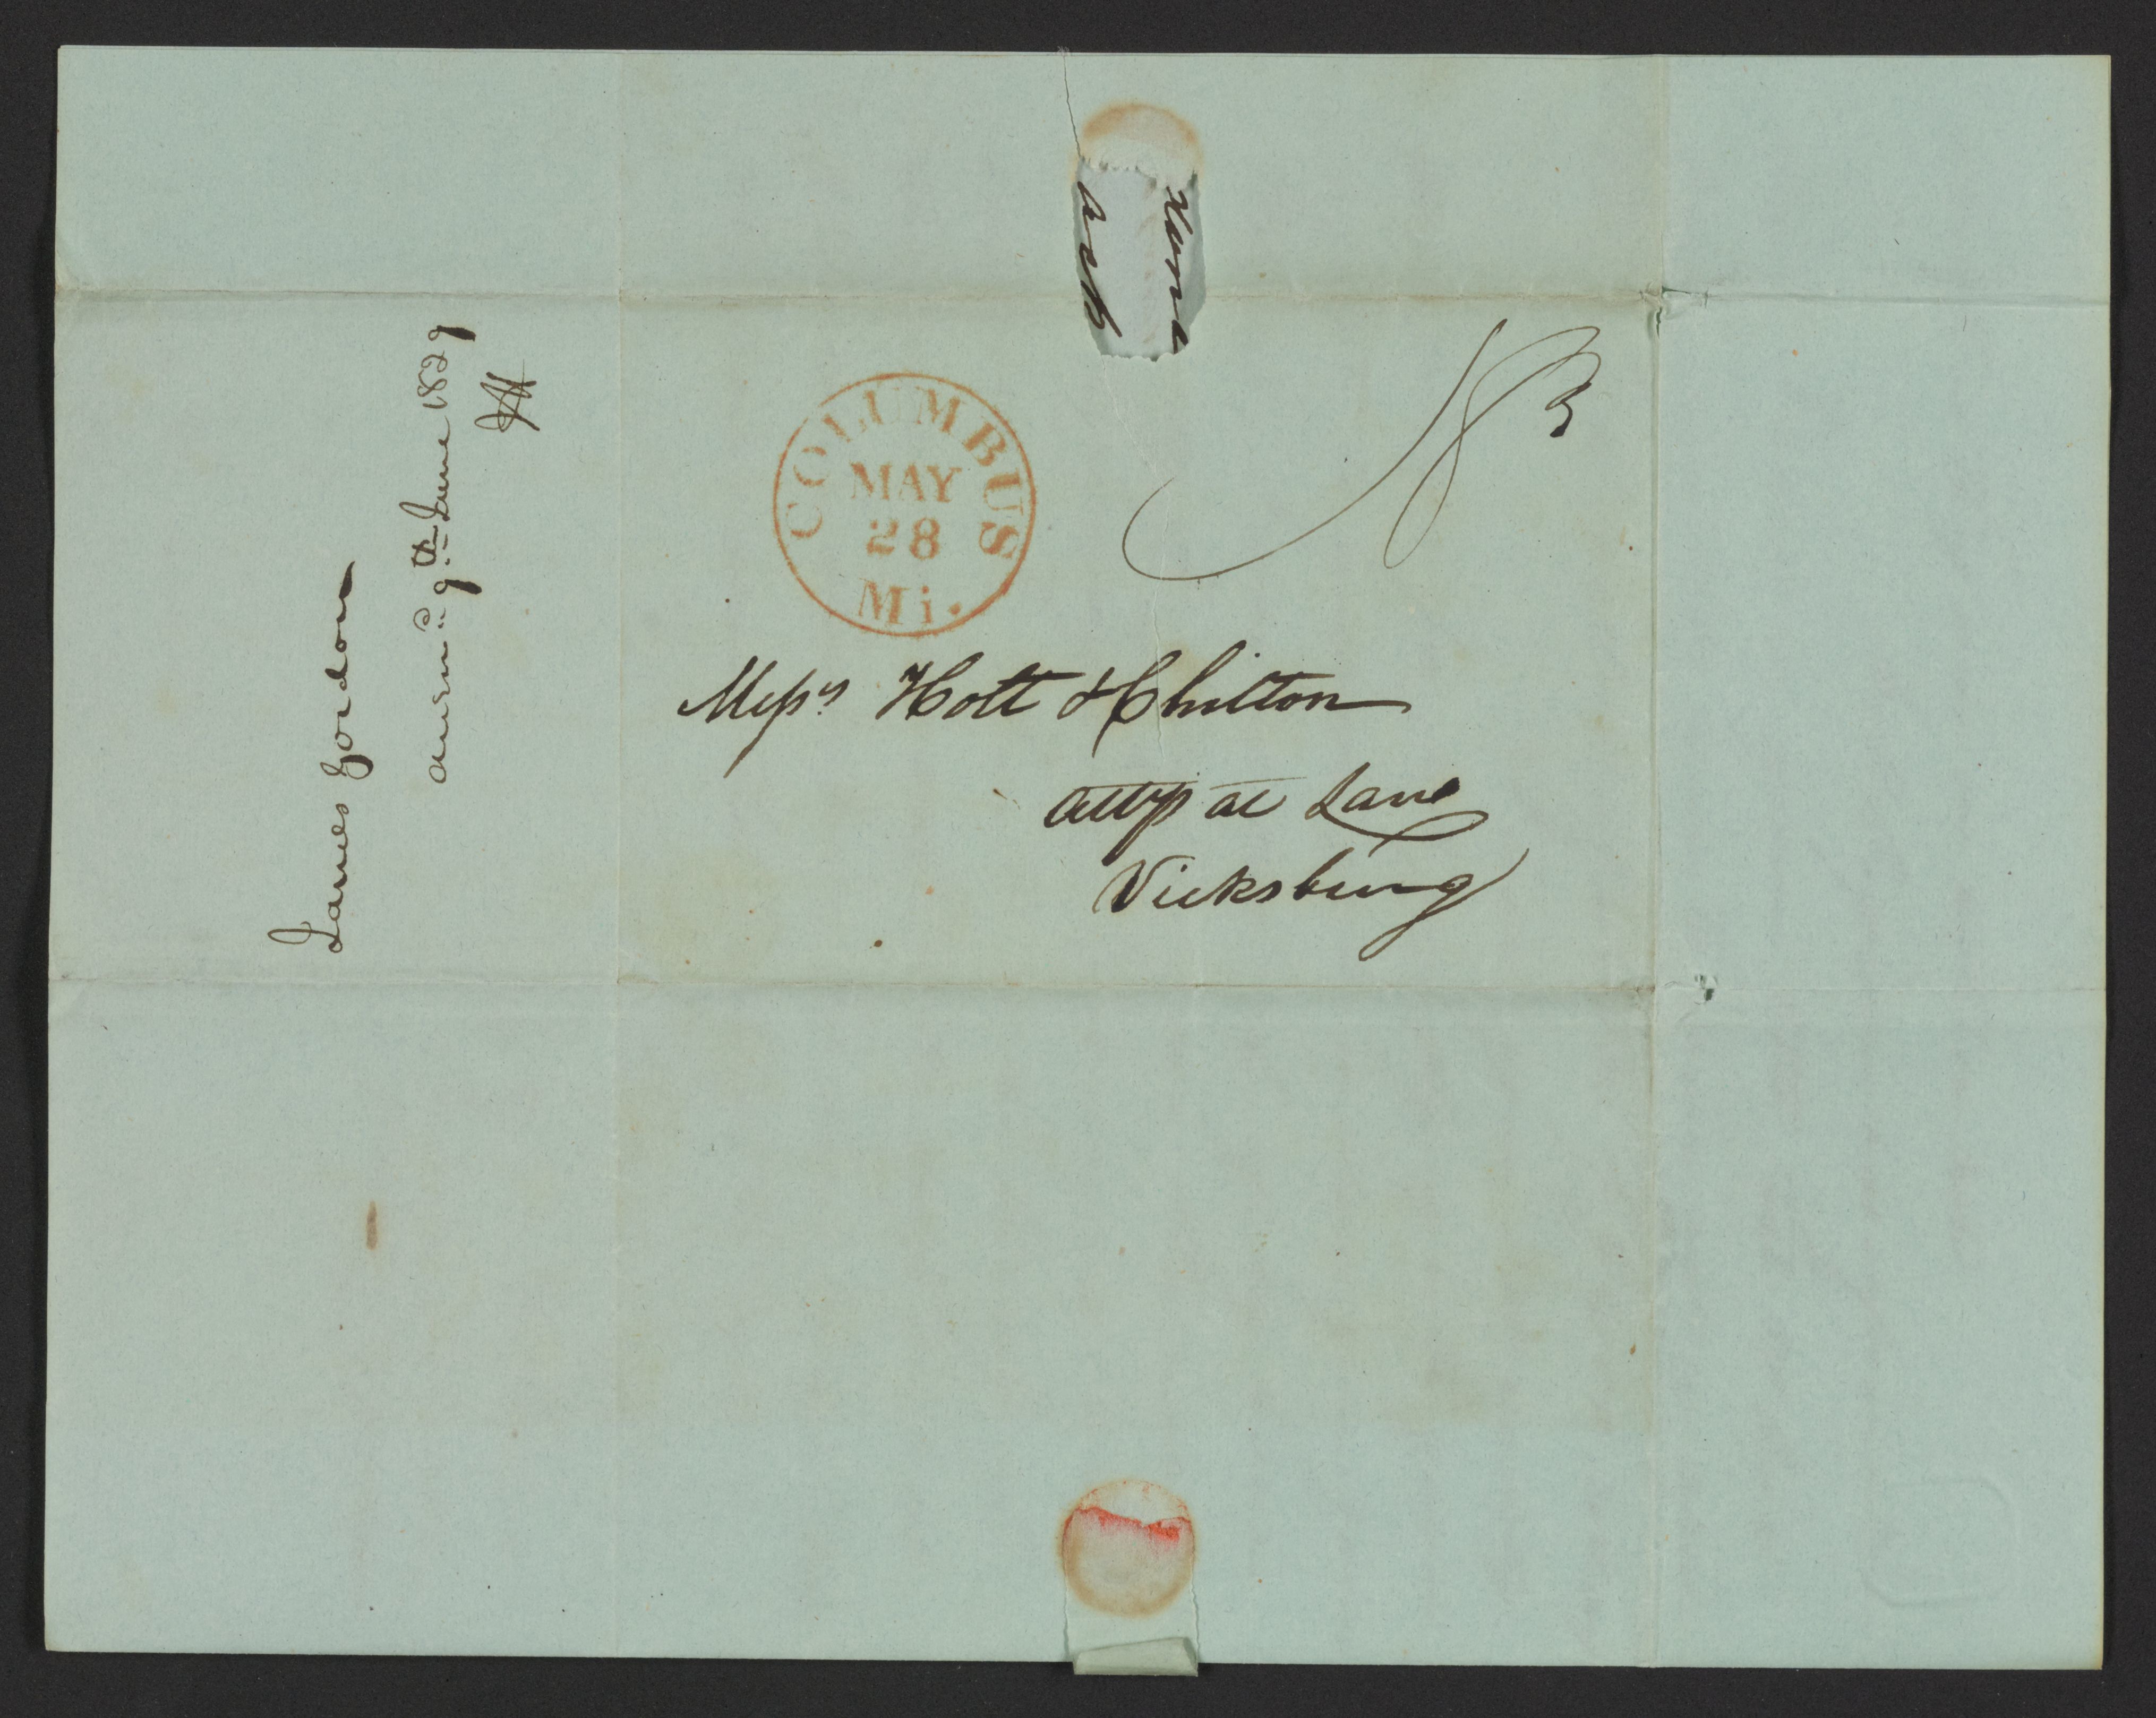 James Gordon
answd 9th June 1839
JH
COLUMBUS
MAY
28
Mi.
18¾
Messrs Holt & Chilton
attys at Law
Vicksburg